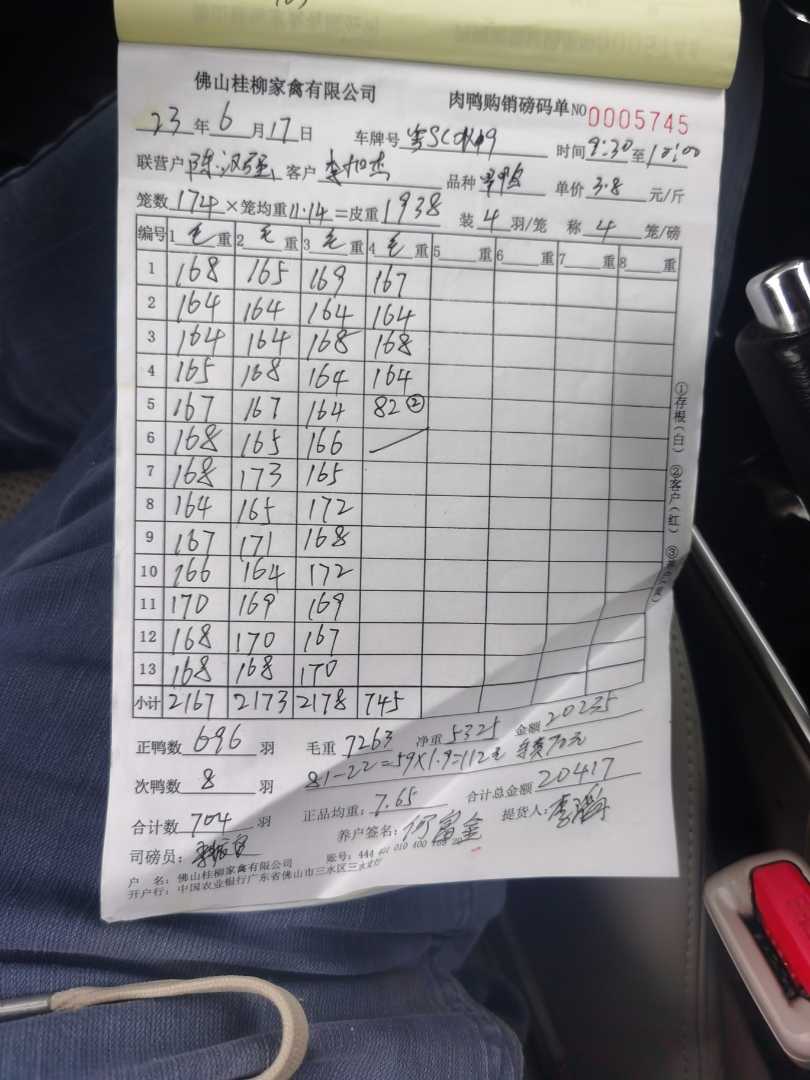 佛山桂柳家禽有限公司 肉鸭购销磅码单 NO 0005745
23年6月17日 车牌号 时间9:30至10:00
联营户 客户 品种 单价3.8元/斤
笼数174×笼均重11.14=皮重1938 装4羽/笼 称4笼/磅
编号 1毛重 2毛重 3毛重 4毛重 5重 6重 7重 8重
1 168 165 169 167
2 164 164 164 164
3 164 164 168 168
4 165 168 164 164
5 167 167 164 82②
6 168 165 166
7 168 173 165
8 164 165 172
9 167 171 168
10 166 164 172
11 170 169 169
12 168 170 167
13 168 168 170
小计 2167 2173 2178 745
正鸭数696羽 毛重7263 净重5325 金额20235
81-22=59×1.9=112元 70元
次鸭数8羽
正品均重:7.65 合计总金额20417
合计数704羽
养户签名:何富金 提货人:
司磅员:
户 名:佛山桂柳家禽有限公司 账号:444
开户行:中国农业银行广东省佛山市三水区三水支行
①存根(白) ②客户(红) ③